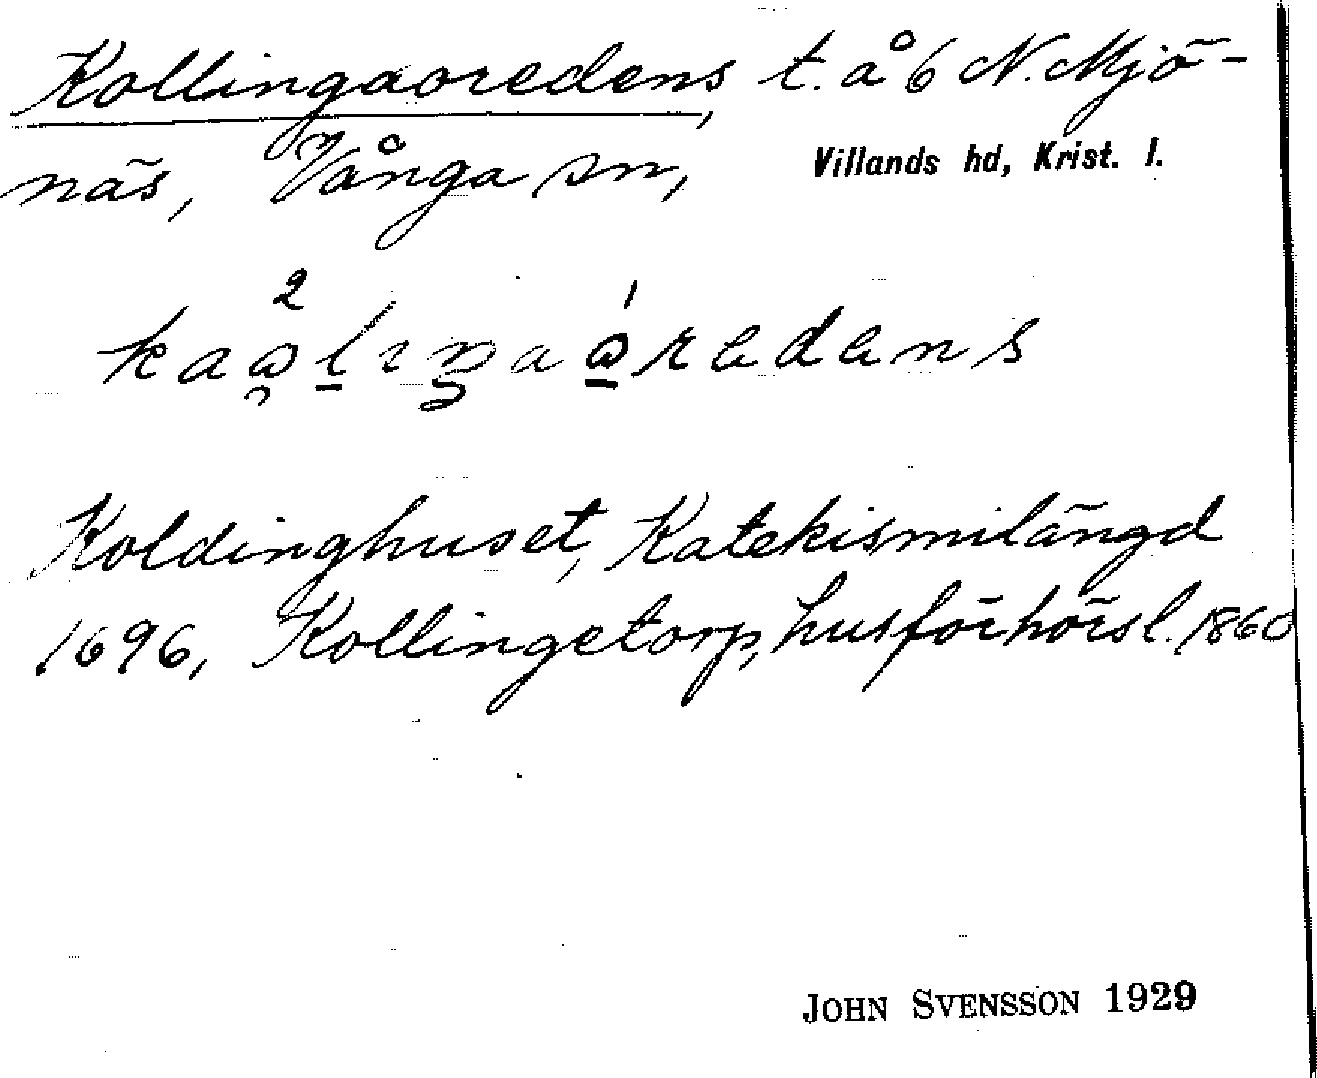 Kollingaoredens, t. å 6 N. Mjö-
näs, Vånga sn, Villands hd, Krist. l.
Koldinghuset, Katekismilängd
1696, Kollingetorp, husförhörsl. 1860
JOHN SVENSSON 1929